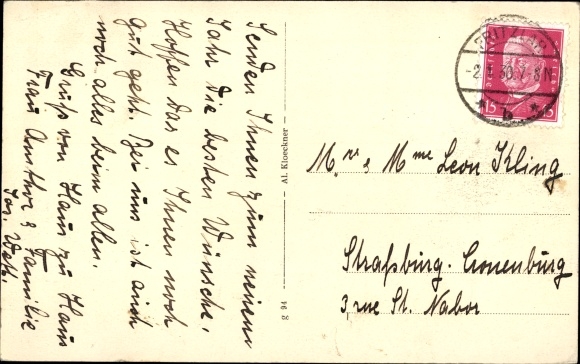 Senden Ihnen zum neuem
Jahr die besten Wünsche.
Hoffen das es Ihnen noch
gut geht. Bei uns ist auch
noch alles beim alten.
Gruß von Haus zu Haus
Frau Amthor & Familie
g 94
Al. Kloeckner
FRITZLAR
-2.1.30.7-8N
* b *
15
15
Mr & Mme Leon Kling
Straßburg-Cronenburg
3, rue St. Nabor